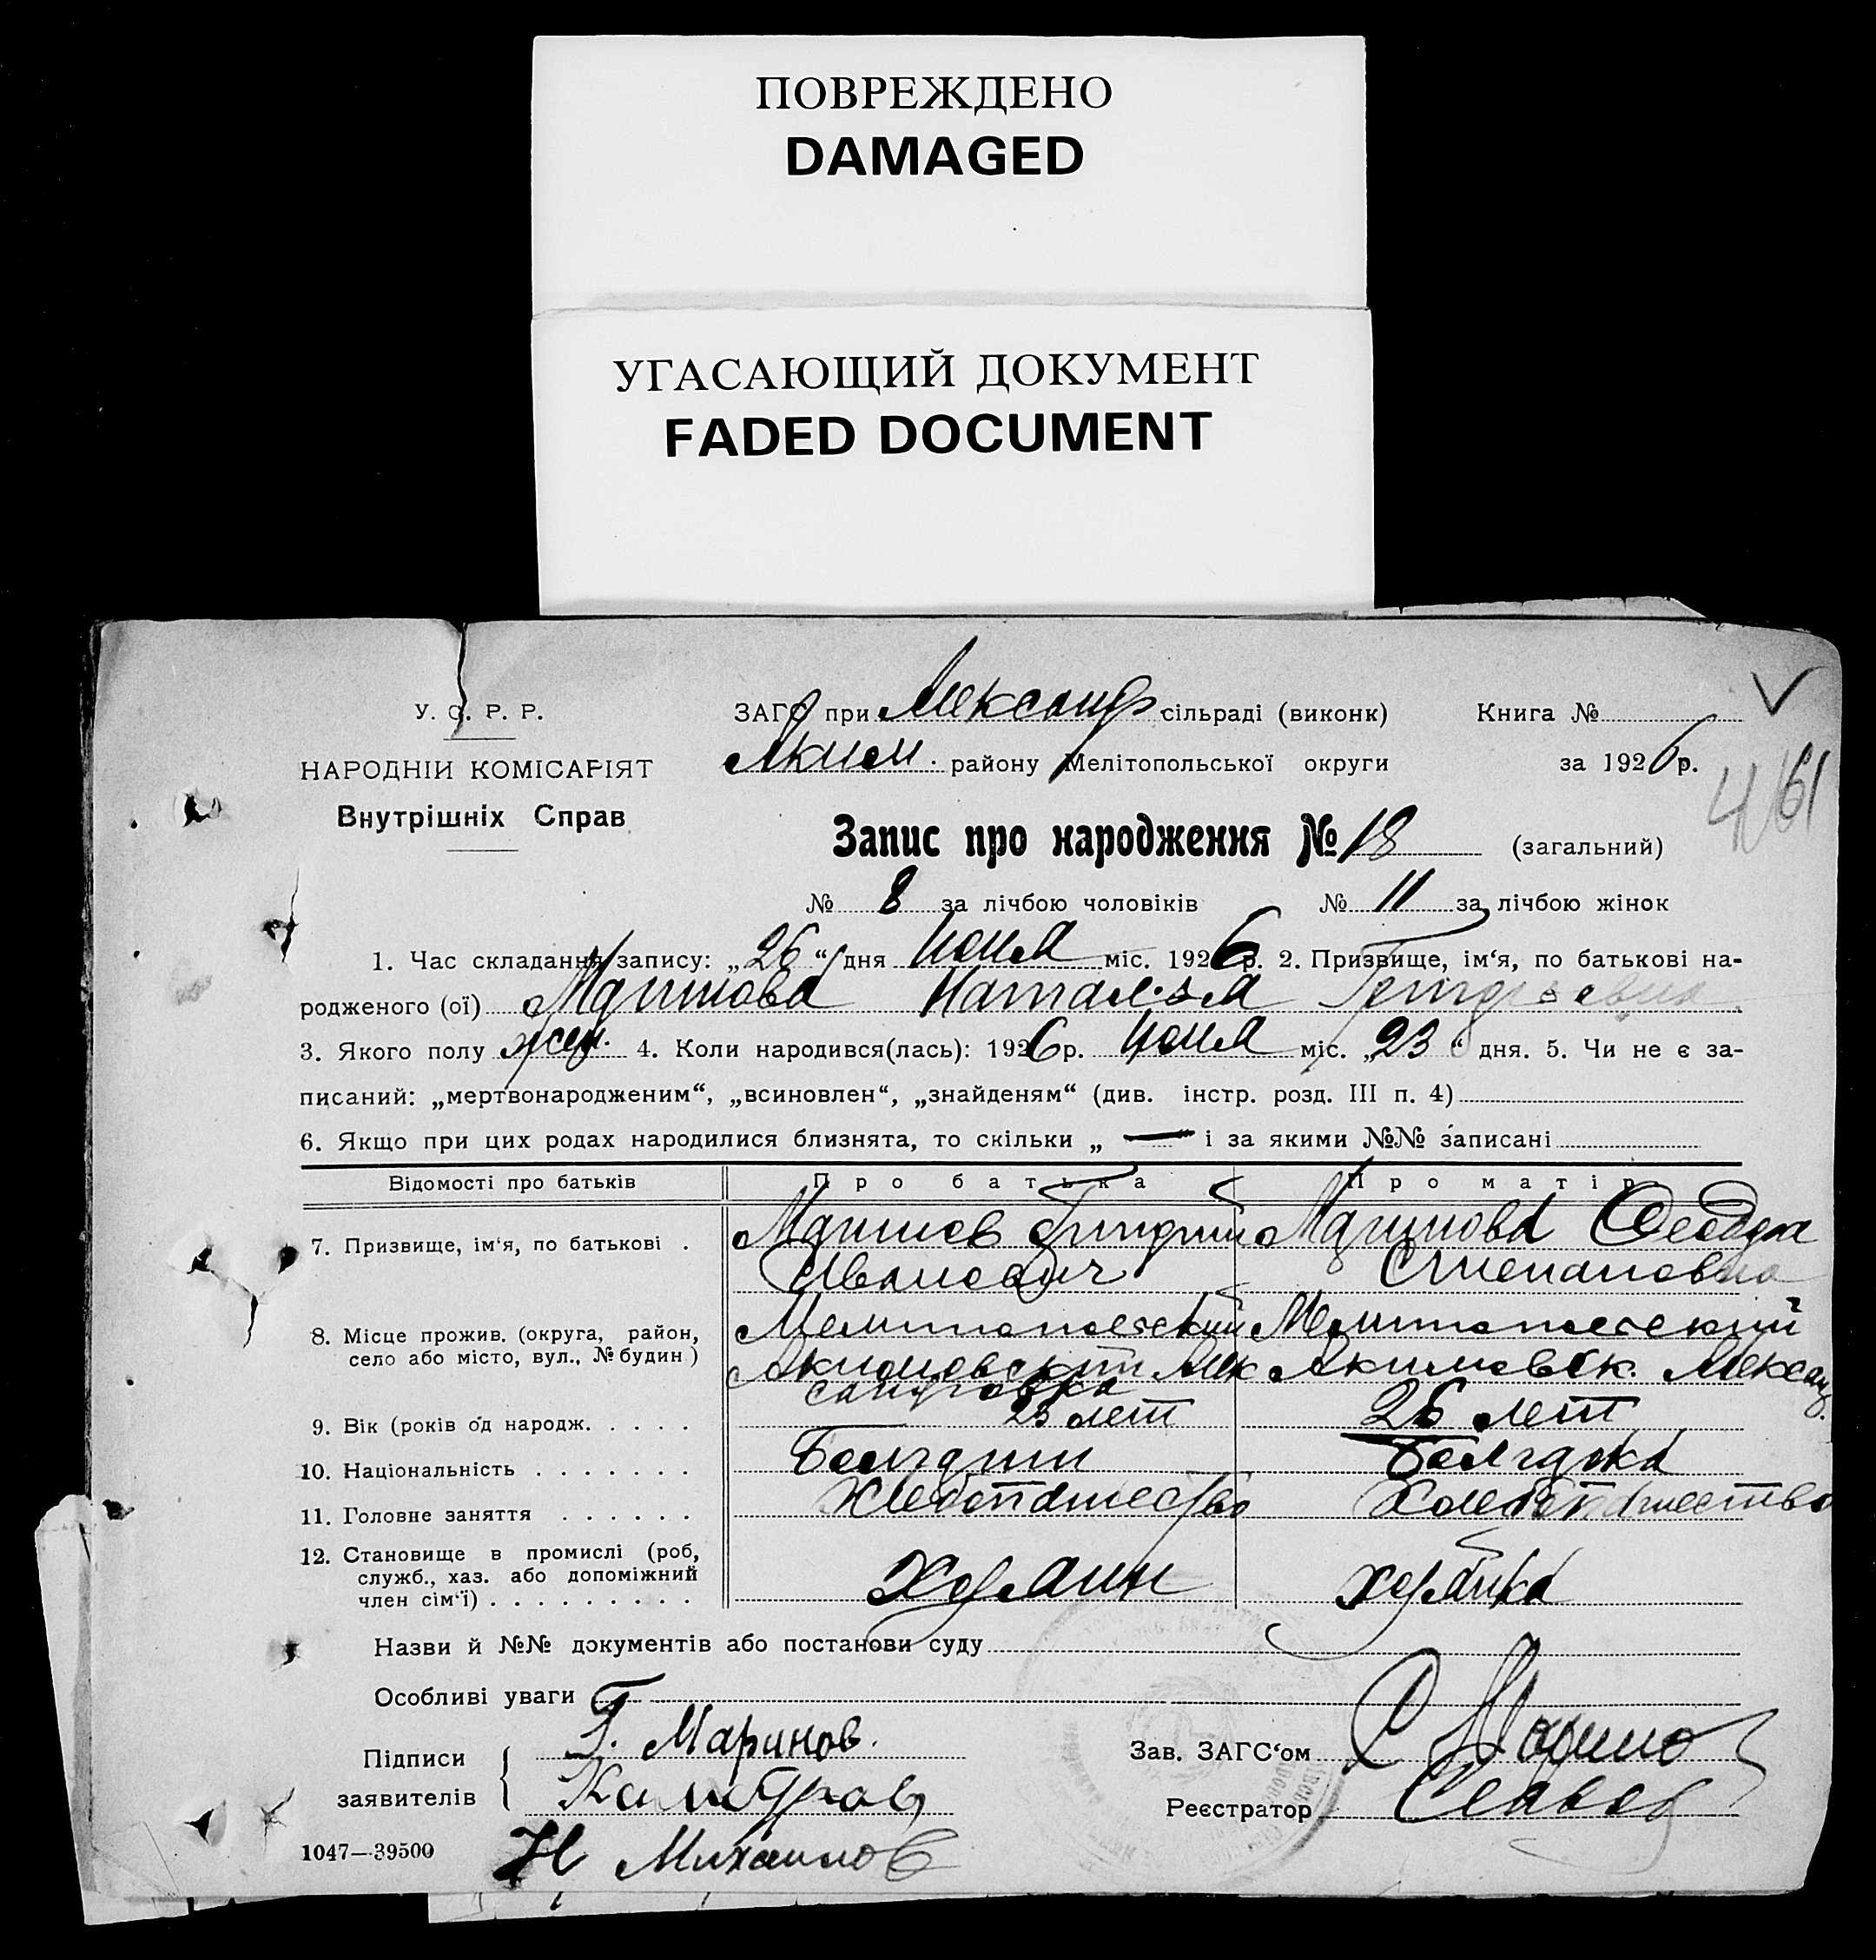 ПОВРЕЖДЕНО
DAMAGED
УГАСАЮЩИЙ ДОКУМЕНТ
FADED DOCUMENT
У. С. Р. Р.
НАРОДНІЙ КОМІСАРІЯТ
Внутрішніх Справ
ЗАГС при Александр сільраді (виконк) Книга №
Аким. району Мелітопольської округи за 1926 р.
461
Запис про народження № 18 (загальний)
№ 8 за лічбою чоловіків № 11 за лічбою жінок
1. Час складання запису: „26“ дня июня міс. 1926 р. 2. Призвище, ім‘я, по батькові на-
родженого (ої) Маринова Наталья Григорьевна
3. Якого полу жен. 4. Коли народився(лась): 1926 р. июня міс. „23“ дня. 5. Чи не є за-
писаний: „мертвонародженим“, „всиновлен“, „знайденям“ (див. інстр. розд. III п. 4)
6. Якщо при цих родах народилися близнята, то скільки „ — “ і за якими №№ записані
Відомості про батьків Про батька Про матір
7. Призвище, ім‘я, по батькові . Маринов Григорий Маринова Феодора
Иванович Степановна
8. Місце прожив. (округа, район, Мелитопольский Мелитопольский
село або місто, вул., № будин) Акимовский Алек Акимовск. Александ.
сандровка
9. Вік (років од народж. . . . . 23 лет 26 лет
10. Національність . . . . . . . Болгарин Болгарка
11. Головне заняття . . . . . . Хлебопашество Хлебопашество
12. Становище в промислі (роб,
служб., хаз. або допоміжний
член сім‘ї) . . . . . . . . . Хозяин хозяйка
Назви й №№ документів або постанови суду
Особливі уваги
Підписи
заявителів
Г. Маринов.
Зав. ЗАГС‘ом
Реєстратор
1047—39500 Н Михаилов